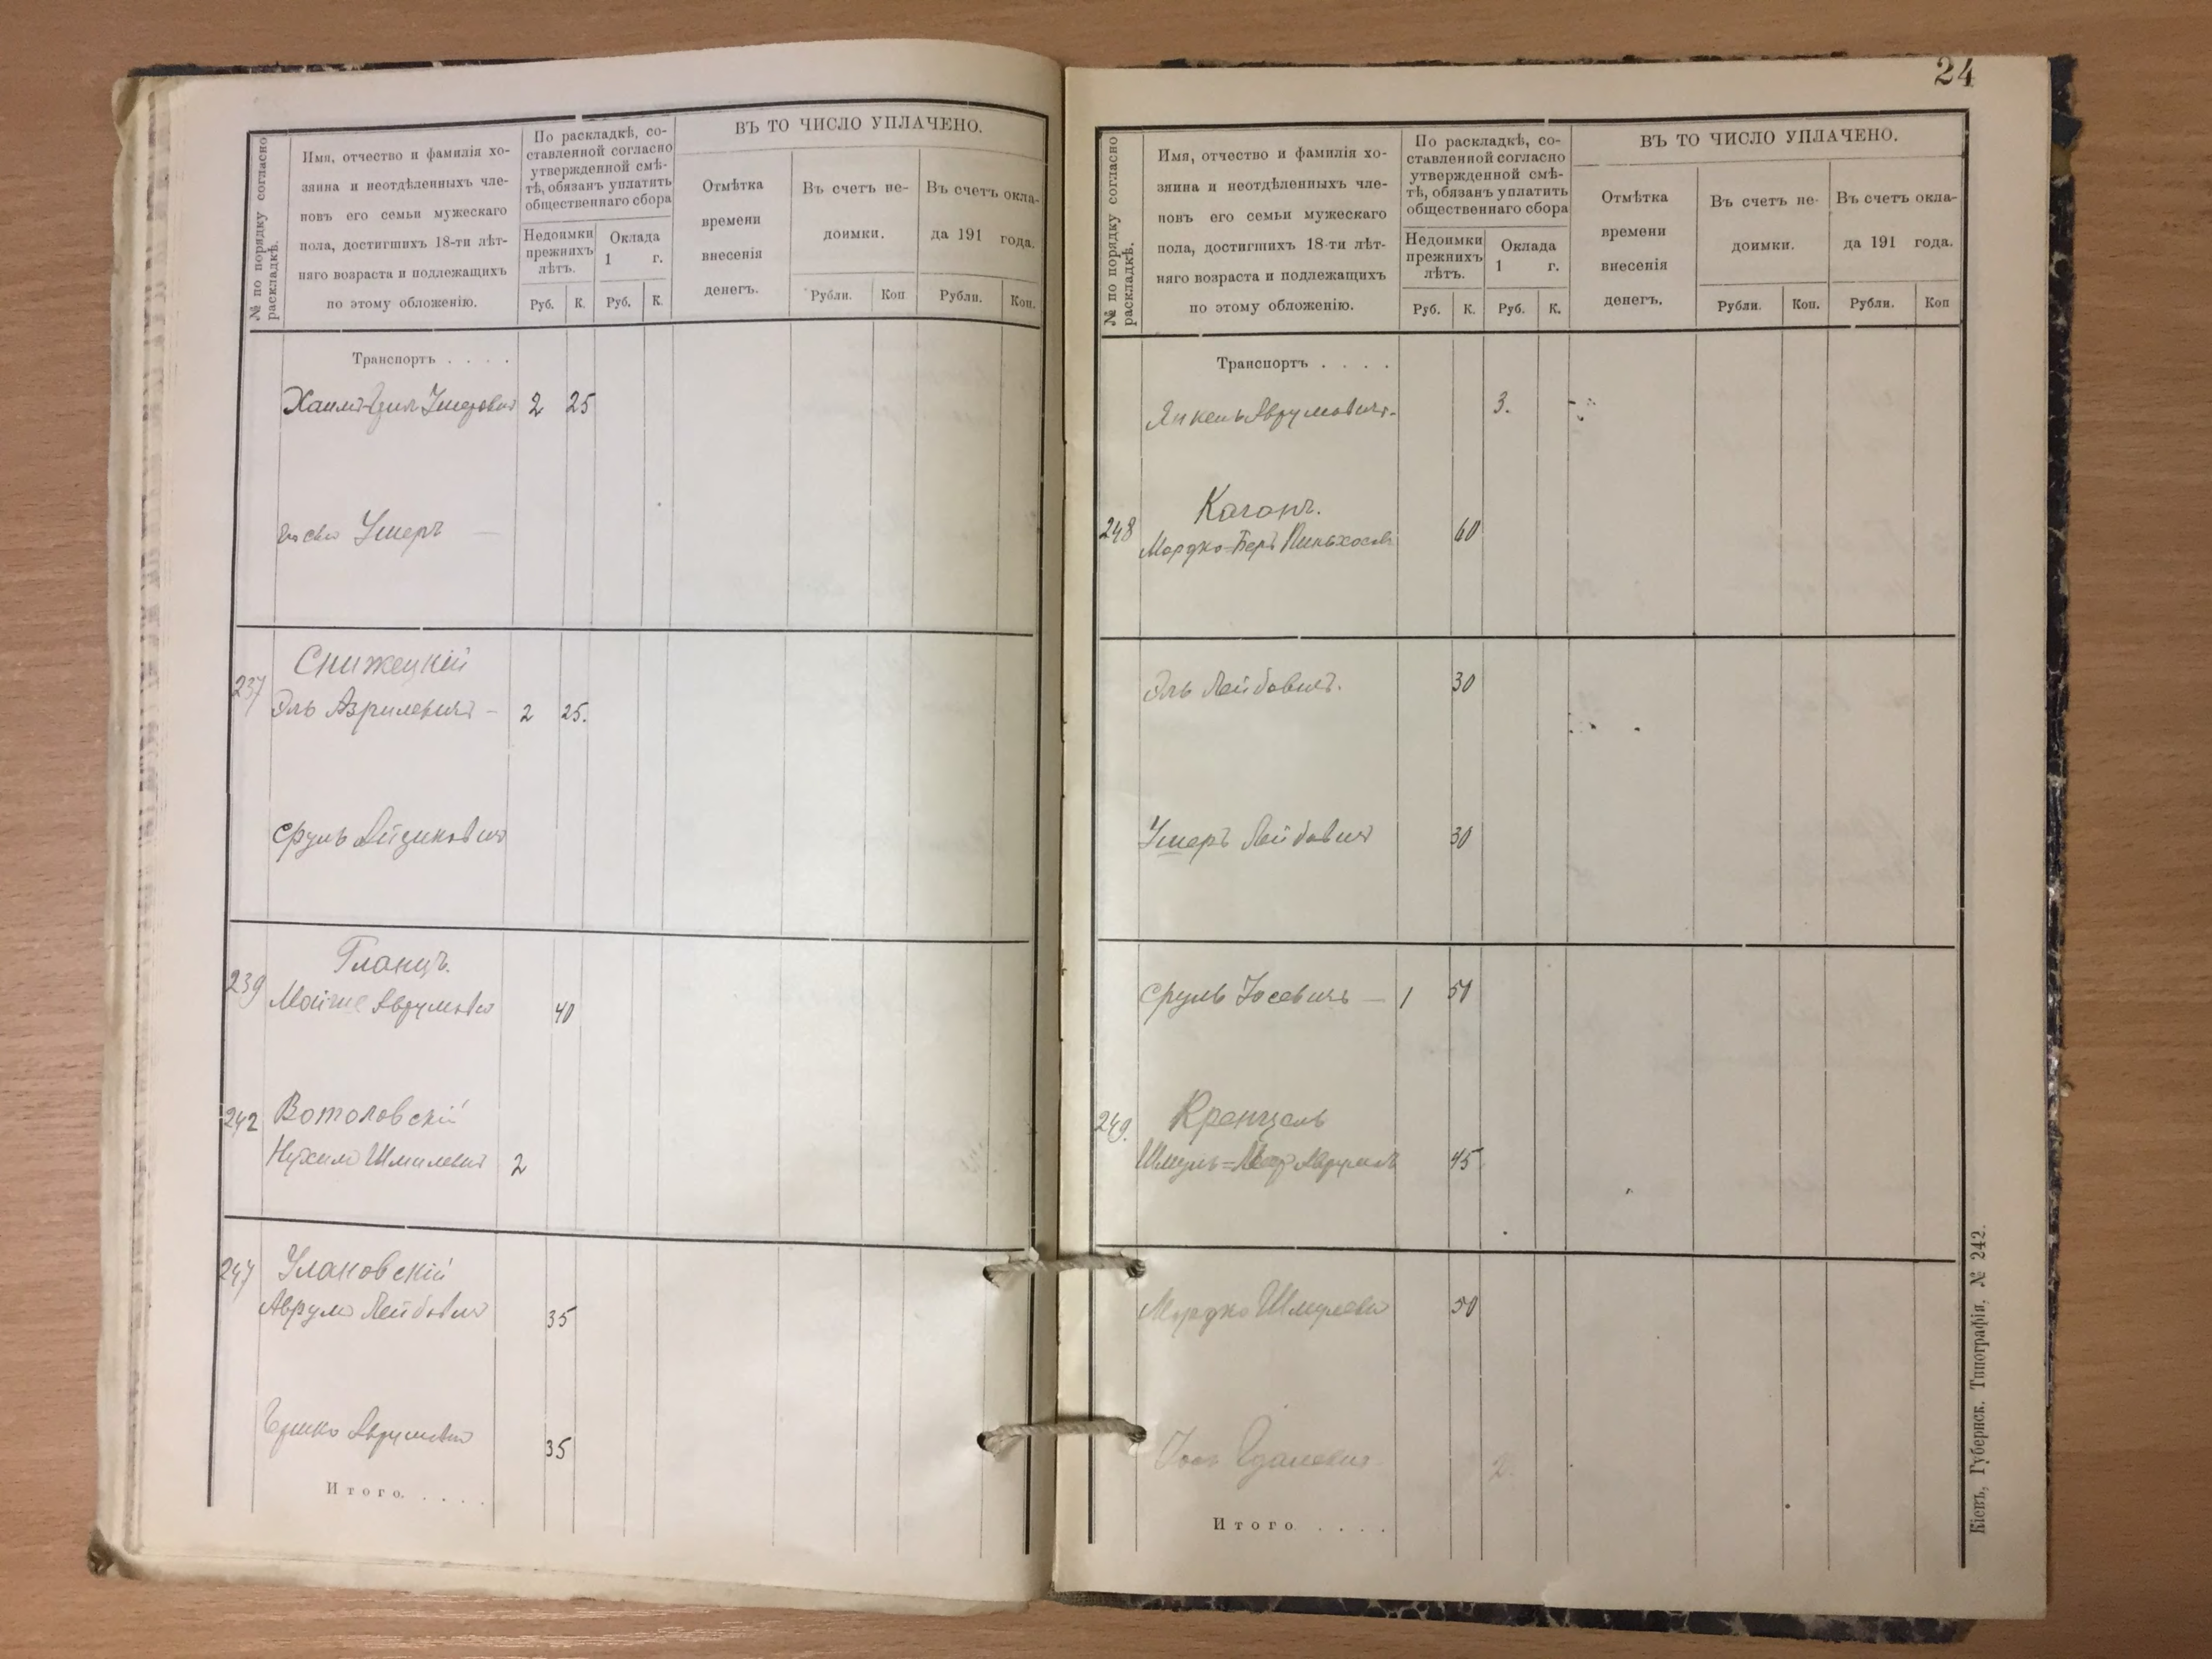 № по порядку согласно
раскладкѣ.
Имя, отчество и фамилія хо-
зяина и неотдѣленныхъ чле-
новъ его семьи мужескаго
пола, достигшихъ 18-ти лѣт-
няго возраста и подлежащихъ
по этому обложенію.
По раскладкѣ, со-
ставленной согласно
утвержденной смѣ-
тѣ, обязанъ уплатить
общественнаго сбора
Недоимки
прежнихъ
лѣтъ.
Оклада
1 г.
Руб. К. Руб. К.
ВЪ ТО ЧИСЛО УПЛАЧЕНО.
Отмѣтка
времени
внесенія
денегъ.
Въ счетъ не-
доимки.
Въ счетъ окла-
да 191 года.
Рубли. Коп Рубли. Коп.
Транспортъ . . . .
2 25
Умеръ
237 Снижецкій
Эль Азрилевичъ – 2 25.
Сруль Айзиковичъ
239 Гланцъ.
Аврумовъ 40
242 Вотоловскій
Нухимъ Шмилевичъ 2
247 Улановскій
Аврумъ Лейбовичъ 35
Аврумовъ 35
Итого. . . . .
24
№ по порядку согласно
раскладкѣ.
Имя, отчество и фамилія хо-
зяина и неотдѣленныхъ чле-
новъ его семьи мужескаго
пола, достигшихъ 18-ти лѣт-
няго возраста и подлежащихъ
по этому обложенію.
По раскладкѣ, со-
ставленной согласно
утвержденной смѣ-
тѣ, обязанъ уплатить
общественнаго сбора
Недоимки
прежнихъ
лѣтъ.
Оклада
1 г.
Руб. К. Руб. К.
ВЪ ТО ЧИСЛО УПЛАЧЕНО.
Отмѣтка
времени
внесенія
денегъ.
Въ счетъ не-
доимки.
Въ счетъ окла-
да 191 года.
Рубли. Коп. Рубли. Коп
Транспортъ . . . .
Янкель Аврумовичъ. 3.
248 Каганъ.
Мордко=Беръ Пиньхасовъ 60
Эль Лейбовичъ. 30
Умеръ Лейбовичъ 30
Сруль Іосевичъ — 1 50
249. Кренцель
45
Мордко Шмулевъ 50
2.
Итого . . . .
Кіевъ, Губернск. Типографія, № 242.